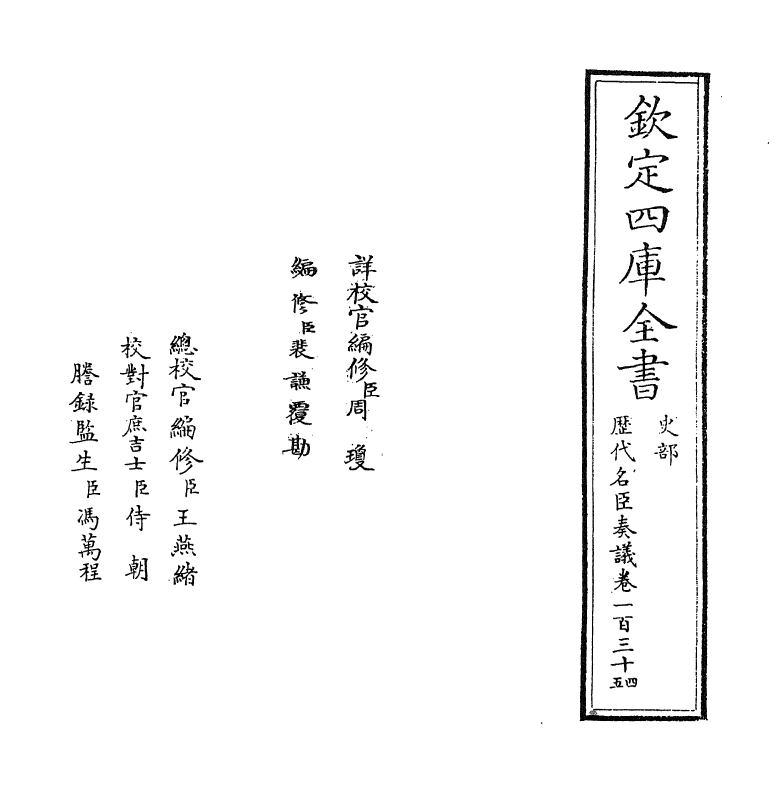 欽定四庫全書
史部
歴代名臣奏議卷一百三十四五
詳校官編修臣周瓊
編修臣裴謙覆勘
總校官編修臣王燕緒
校對官庶吉士臣侍朝
謄録監生臣馮萬程